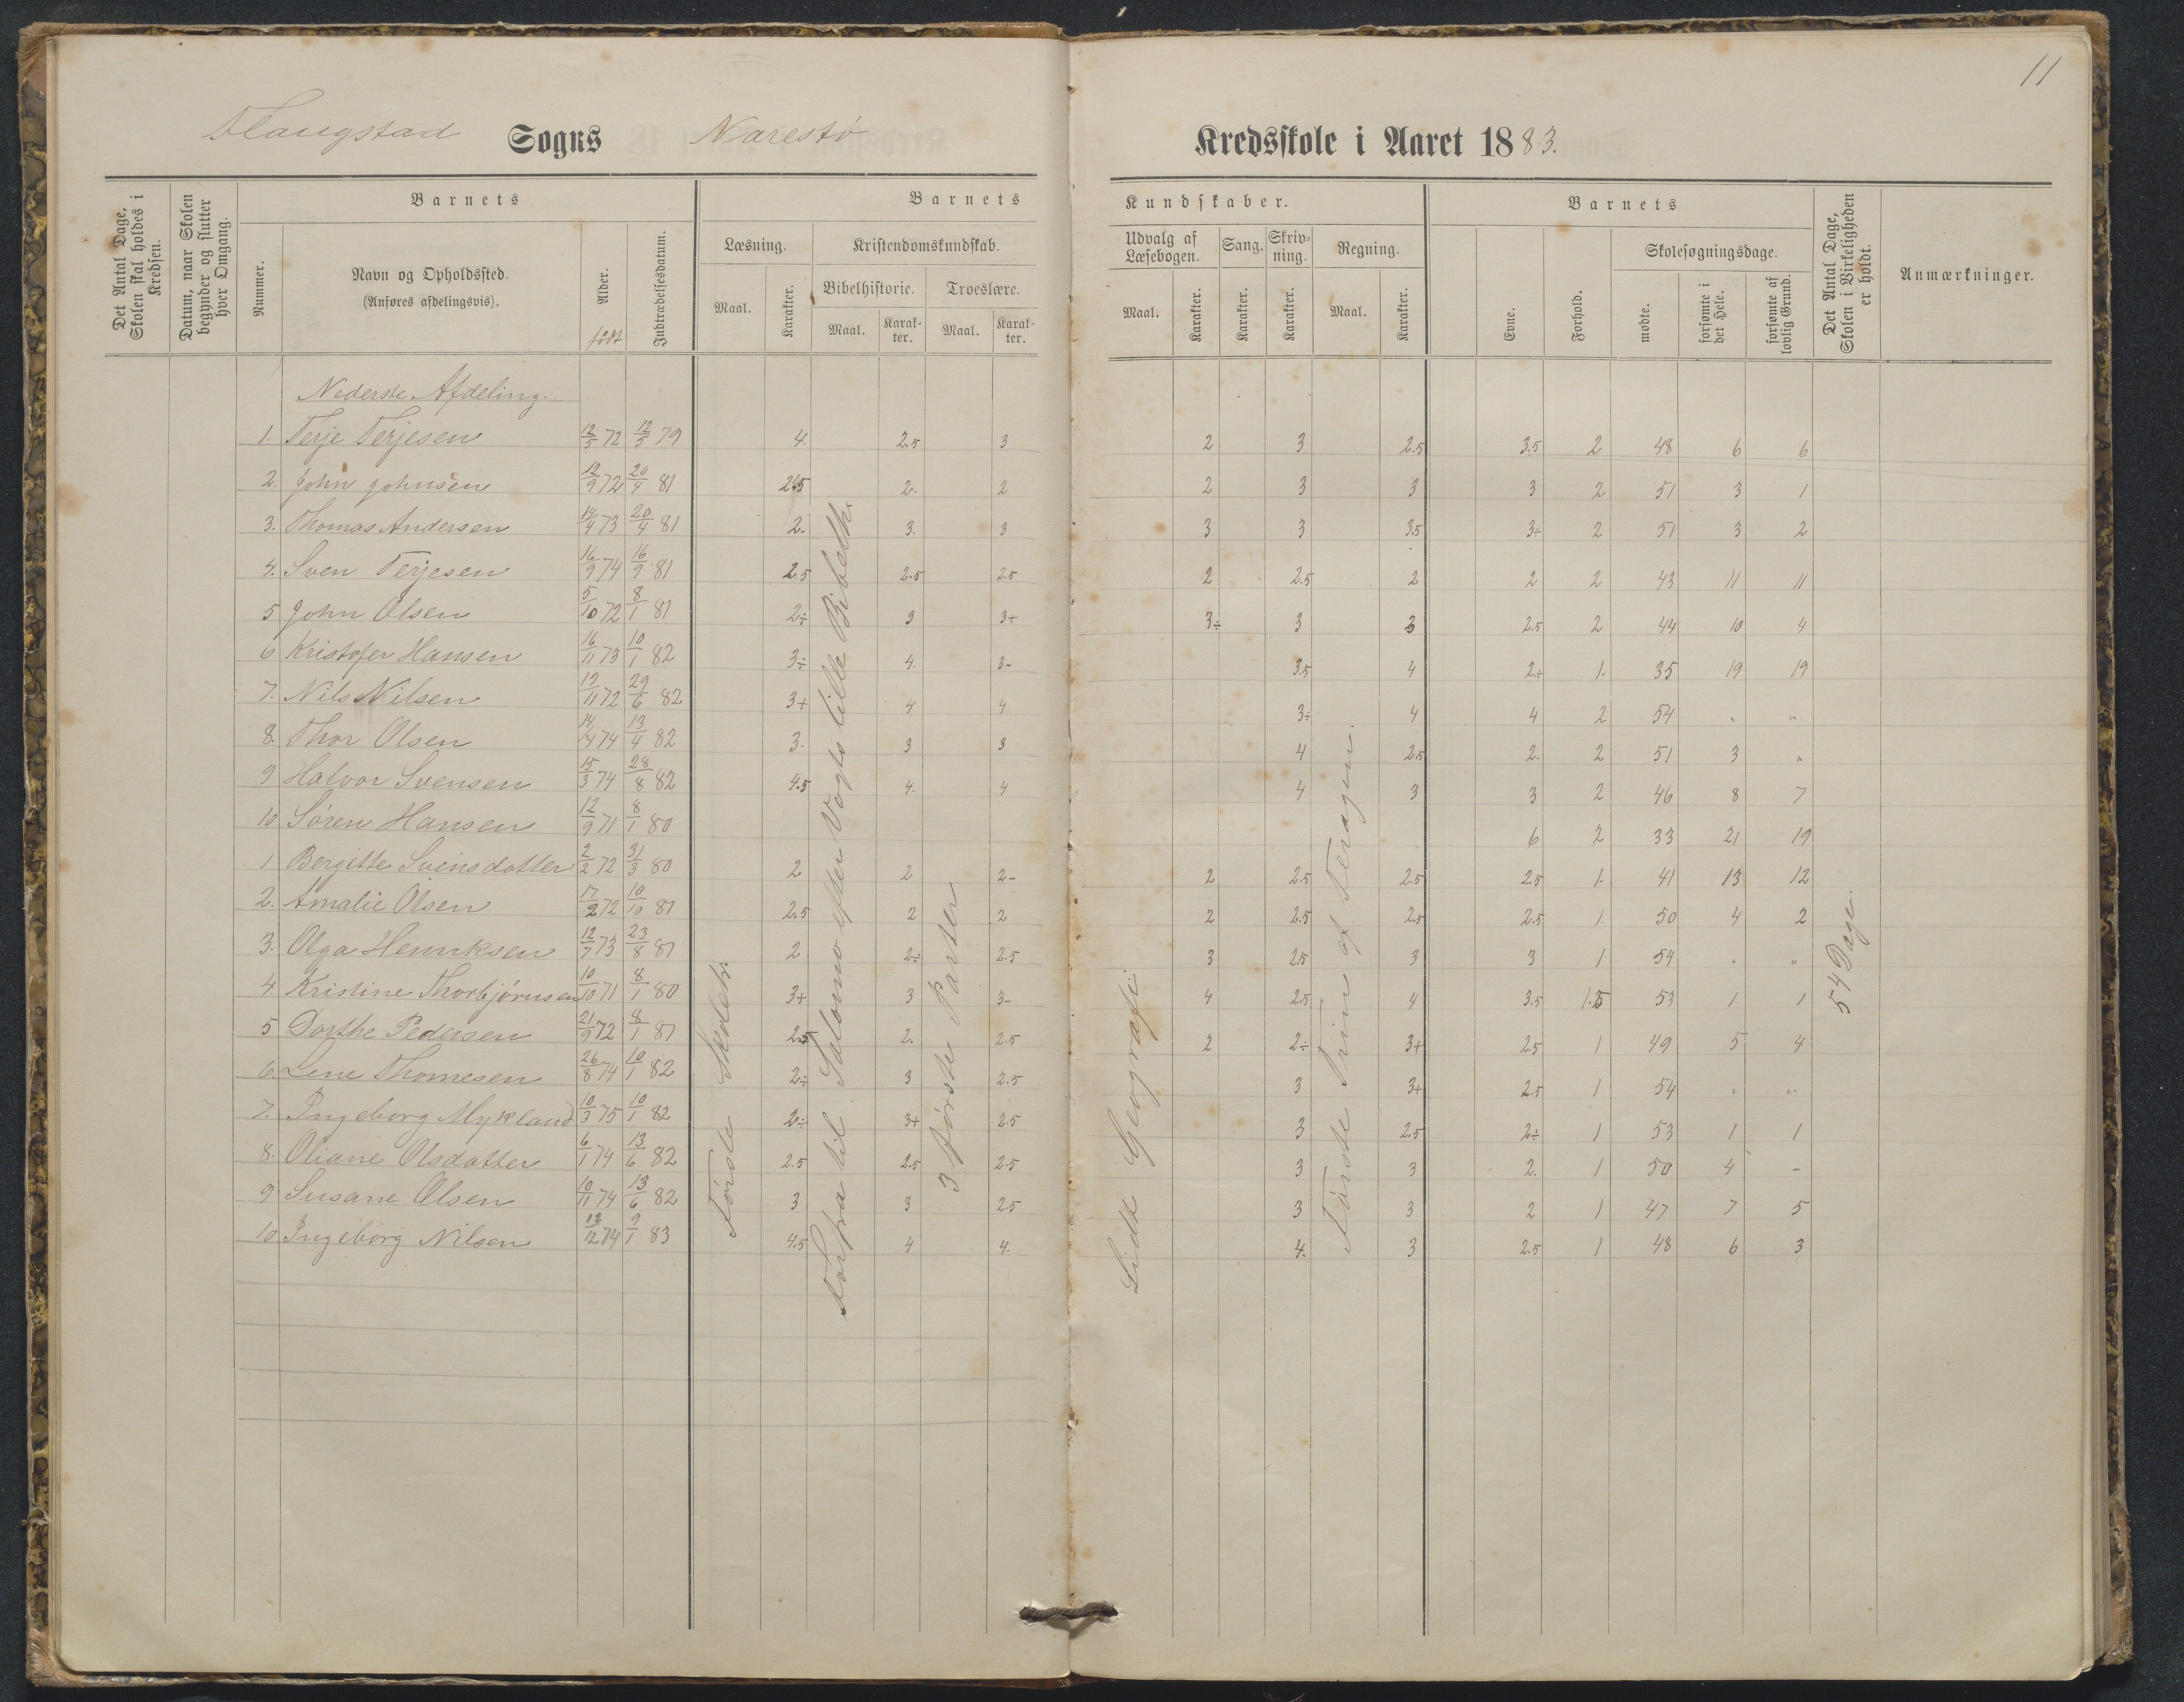 11
Flaugstad Sogns Narestø Kredsskole i Aaret 1883.
Det Antal Dage, Skolen skal holdes i Kredsen.
Datum, naar Skolen begynder og slutter hver Omgang.
Barnets
Nummer.
Navn og Opholdssted.
(Anføres afdelingsvis).
Alder.
født
Indtrædelsesdatum.
Barnets
Læsning.
Maal.
Karakter.
Kristendomskundskab.
Bibelhistorie.
Maal.
Karakter.
Troeslære.
Maal.
Karakter.
Kundskaber.
Udvalg af Læsebogen.
Maal.
Karakter.
Sang.
Karakter.
Skrivning.
Karakter.
Regning.
Maal.
Karakter.
Barnets
Evne.
Forhold.
Skolesøgningsdage.
mødte.
forsømte i det Hele.
forsømte af lovlig Grund.
Det Antal Dage, Skolen i Virkeligheden er holdt.
Anmærkninger.
Nederste Afdeling.
1. Terje Terjesen 12/5 72 12/5 79 4. 2.5 3 2 3 2.5 3.5 2 48 6 6
2. John Johnsen 12/9 72 20/4 81 2.5 2. 2 2 3 3 3 2 51 3 1
3. Thomas Andersen 14/4 73 20/4 81 2. 3. 3 3 3 3.5 3÷ 2 51 3 2
4. Sven Terjesen 16/9 74 16/9 81 2.5 2.5 2.5 2 2.5 2 2 2 43 11 11
5 John Olsen 5/10 72 8/1 81 2÷ 3 3+ 3÷ 3 3 2.5 2 44 10 4
6 Kristofer Hansen 16/11 73 10/1 82 3÷ 4. 3- 3.5 4 2÷ 1. 35 19 19
7. Nils Nilsen 19/11 72 29/6 82 3+ 4 4 3÷ 4 4 2 54 " "
8. Thor Olsen 14/4 74 13/4 82 3. 3 3 4 2.5 2. 2 51 3 "
9 Halvor Svensen 15/3 74 28/8 82 4.5 4. 4 4 3 3 2 46 8 7
10 Søren Hansen 12/9 71 8/1 80 6 2 33 21 19
1 Bergitte Svensdatter 2/2 72 31/3 80 2 2 2- 2 2.5 2.5 2.5 1. 41 13 12
2. Amalie Olsen 17/2 72 10/10 81 2.5 2 2 2 2.5 2.5 2.5 1. 50 4 2
3. Olga Henriksen 12/7 73 23/8 81 2 2÷ 2.5 3 2.5 3 3 1 54 " "
4. Kristine Thorbjørnsen 10/10 71 8/1 80 3+ 3 3- 4 2.5 4 3.5 1.5 53 1 1
5 Dorthe Pedersen 21/9 72 8/1 81 2.5 2. 2.5 2 2÷ 3+ 2.5 1 49 5 4
6. Lene Thomesen 26/8 74 10/1 82 2÷ 3 2.5 3 3+ 2.5 1 54 " "
7. Ingeborg Mykland 10/3 75 10/1 82 2÷ 3+ 2.5 3 2.5 2÷ 1 53 1 1
8. Oliane Olsdatter 6/1 74 13/6 82 2.5 2.5 2.5 3 3 2. 1 50 4 -
9. Susane Olsen 10/11 74 13/6 82 3 3 2.5 3 3 2 1 47 7 5
10 Ingeborg Nilsen 12/12 74 9/1 83 4.5 4 4. 4. 3 2.5 1 48 6 3
Første
Forfra til Salomo efter Vogts lille Bibelh.
3 første Parter
Lidt Geografi
Første Trin af
54 Dage.